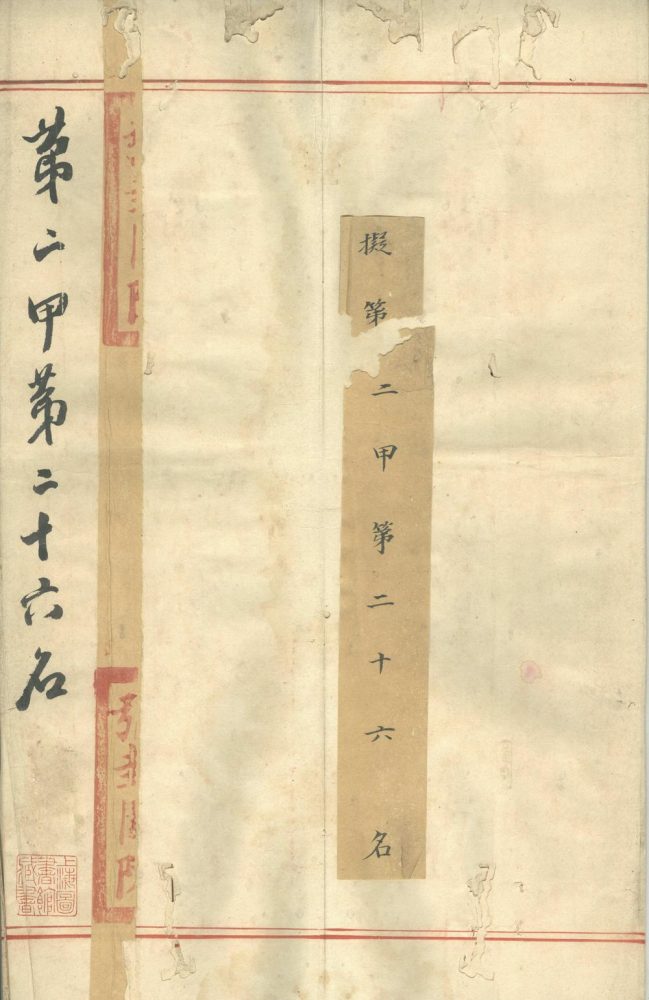 擬第二甲第二十六名
苐二甲苐二十六名
上海圖書館藏書